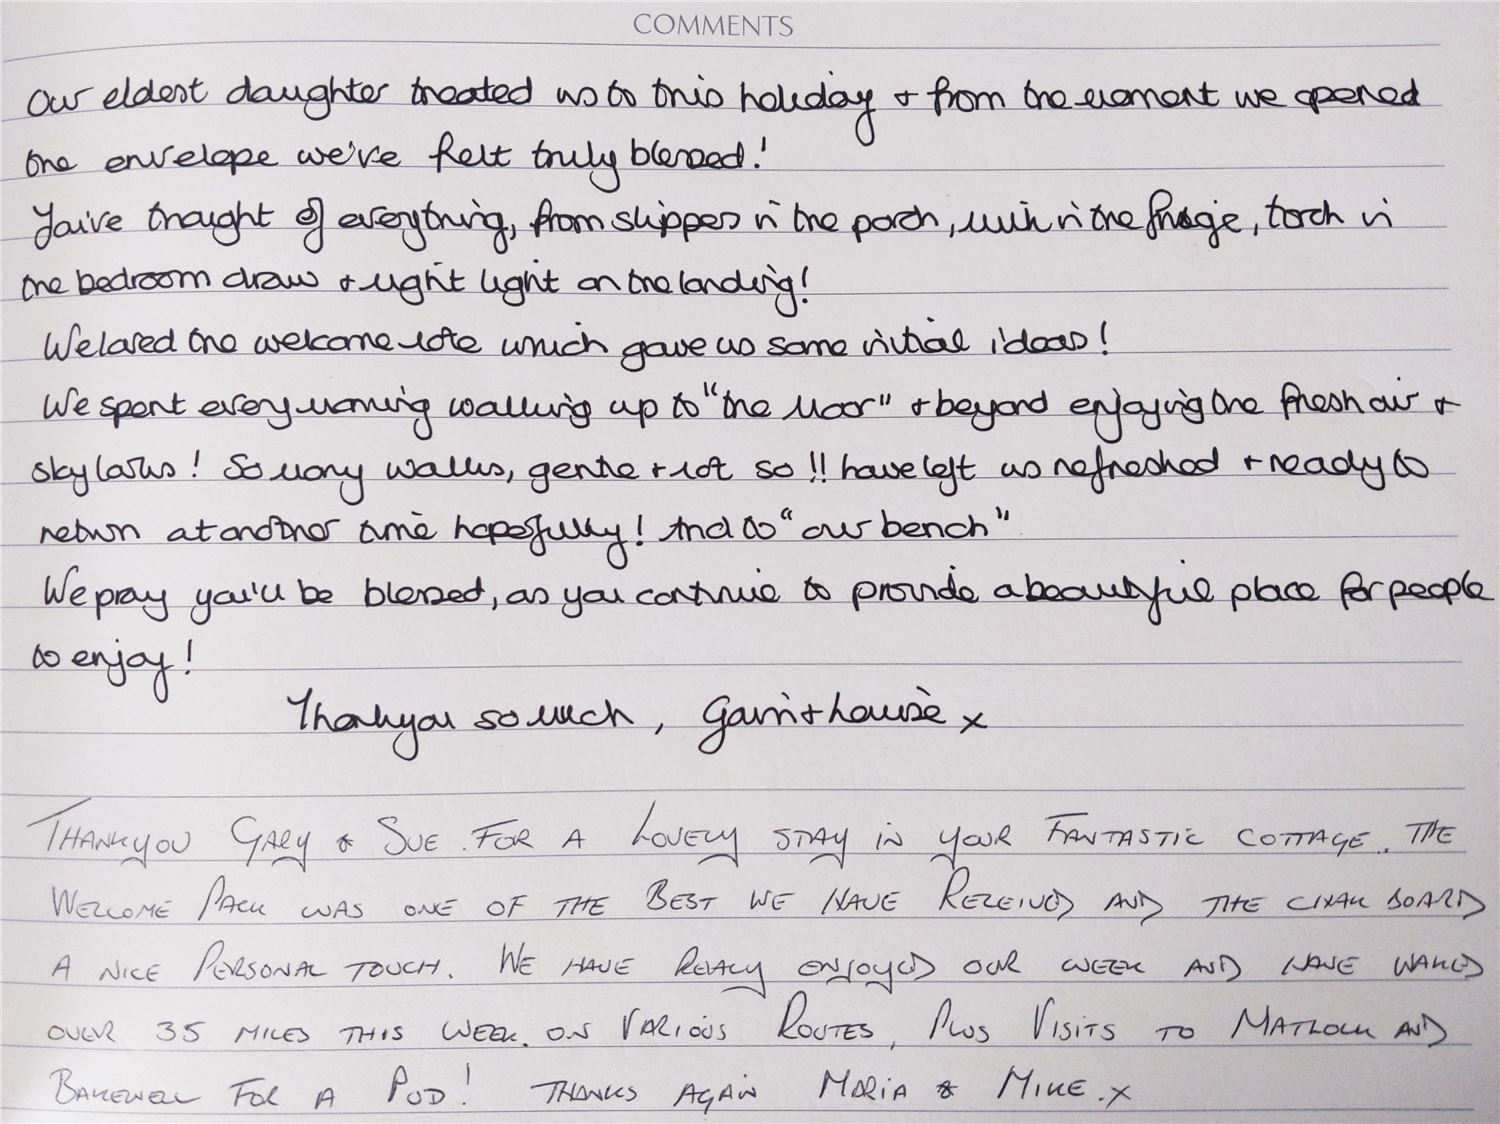 COMMENTS
Our eldest daughter treated us to this holiday + from the moment we opened
the envelope we've felt truly blessed!
You've thought of everything, from slippers in the porch, milk in the fridge, torch in
the bedroom draw + night light on the landing!
We loved the welcome note which gave us some initial ideas!
We spent every morning walking up to "the Moor" + beyond enjoying the fresh air +
skylarks! So many walks, gentle + not so!! have left us refreshed + ready to
return at another time hopefully! And to "our bench"
We pray you'll be blessed, as you continue to provide a beautiful place for people
to enjoy!
Thankyou so much, + Louise x
THANKYOU GARY & SUE. FOR A LOVELY STAY IN YOUR FANTASTIC COTTAGE. THE
WELCOME PACK WAS ONE OF THE BEST WE HAVE RECEIVED AND THE CHALK BOARD
A NICE PERSONAL TOUCH. WE HAVE REALLY ENJOYED OUR WEEK AND HAVE WALKED
OVER 35 MILES THIS WEEK. ON VARIOUS ROUTES, PLUS VISITS TO MATLOCK AND
BAKEWELL FOR A PUD! THANKS AGAIN MARIA & MIKE. X